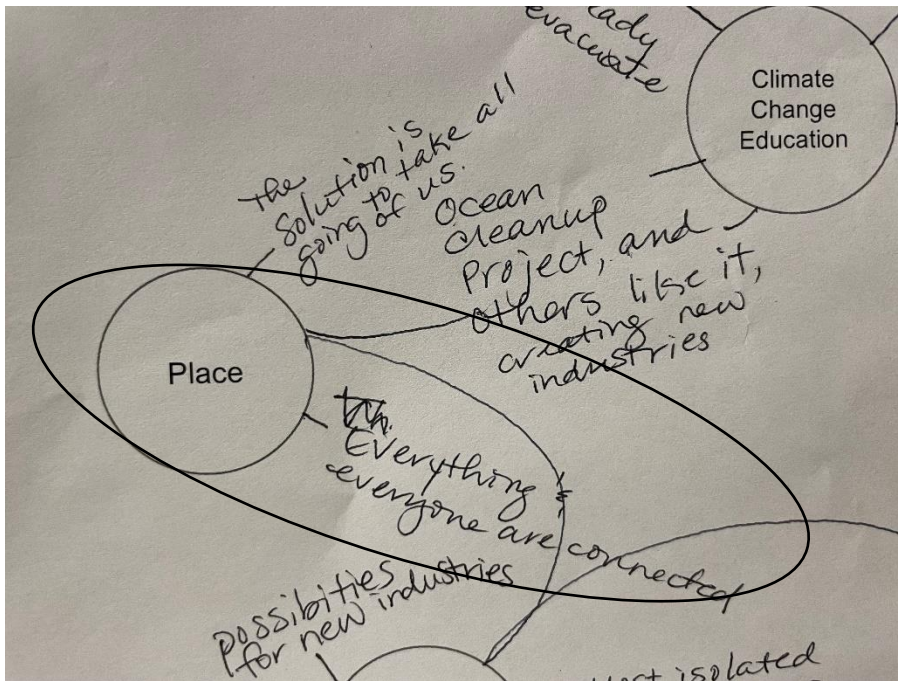 eady
evacuate
Climate
Change
Education
the
solution is
going to take all
of us.
Ocean
cleanup
Project, and
others like it,
creating new
industries
Place
Everything &
everyone are connected
possibities
for new industries
isolated